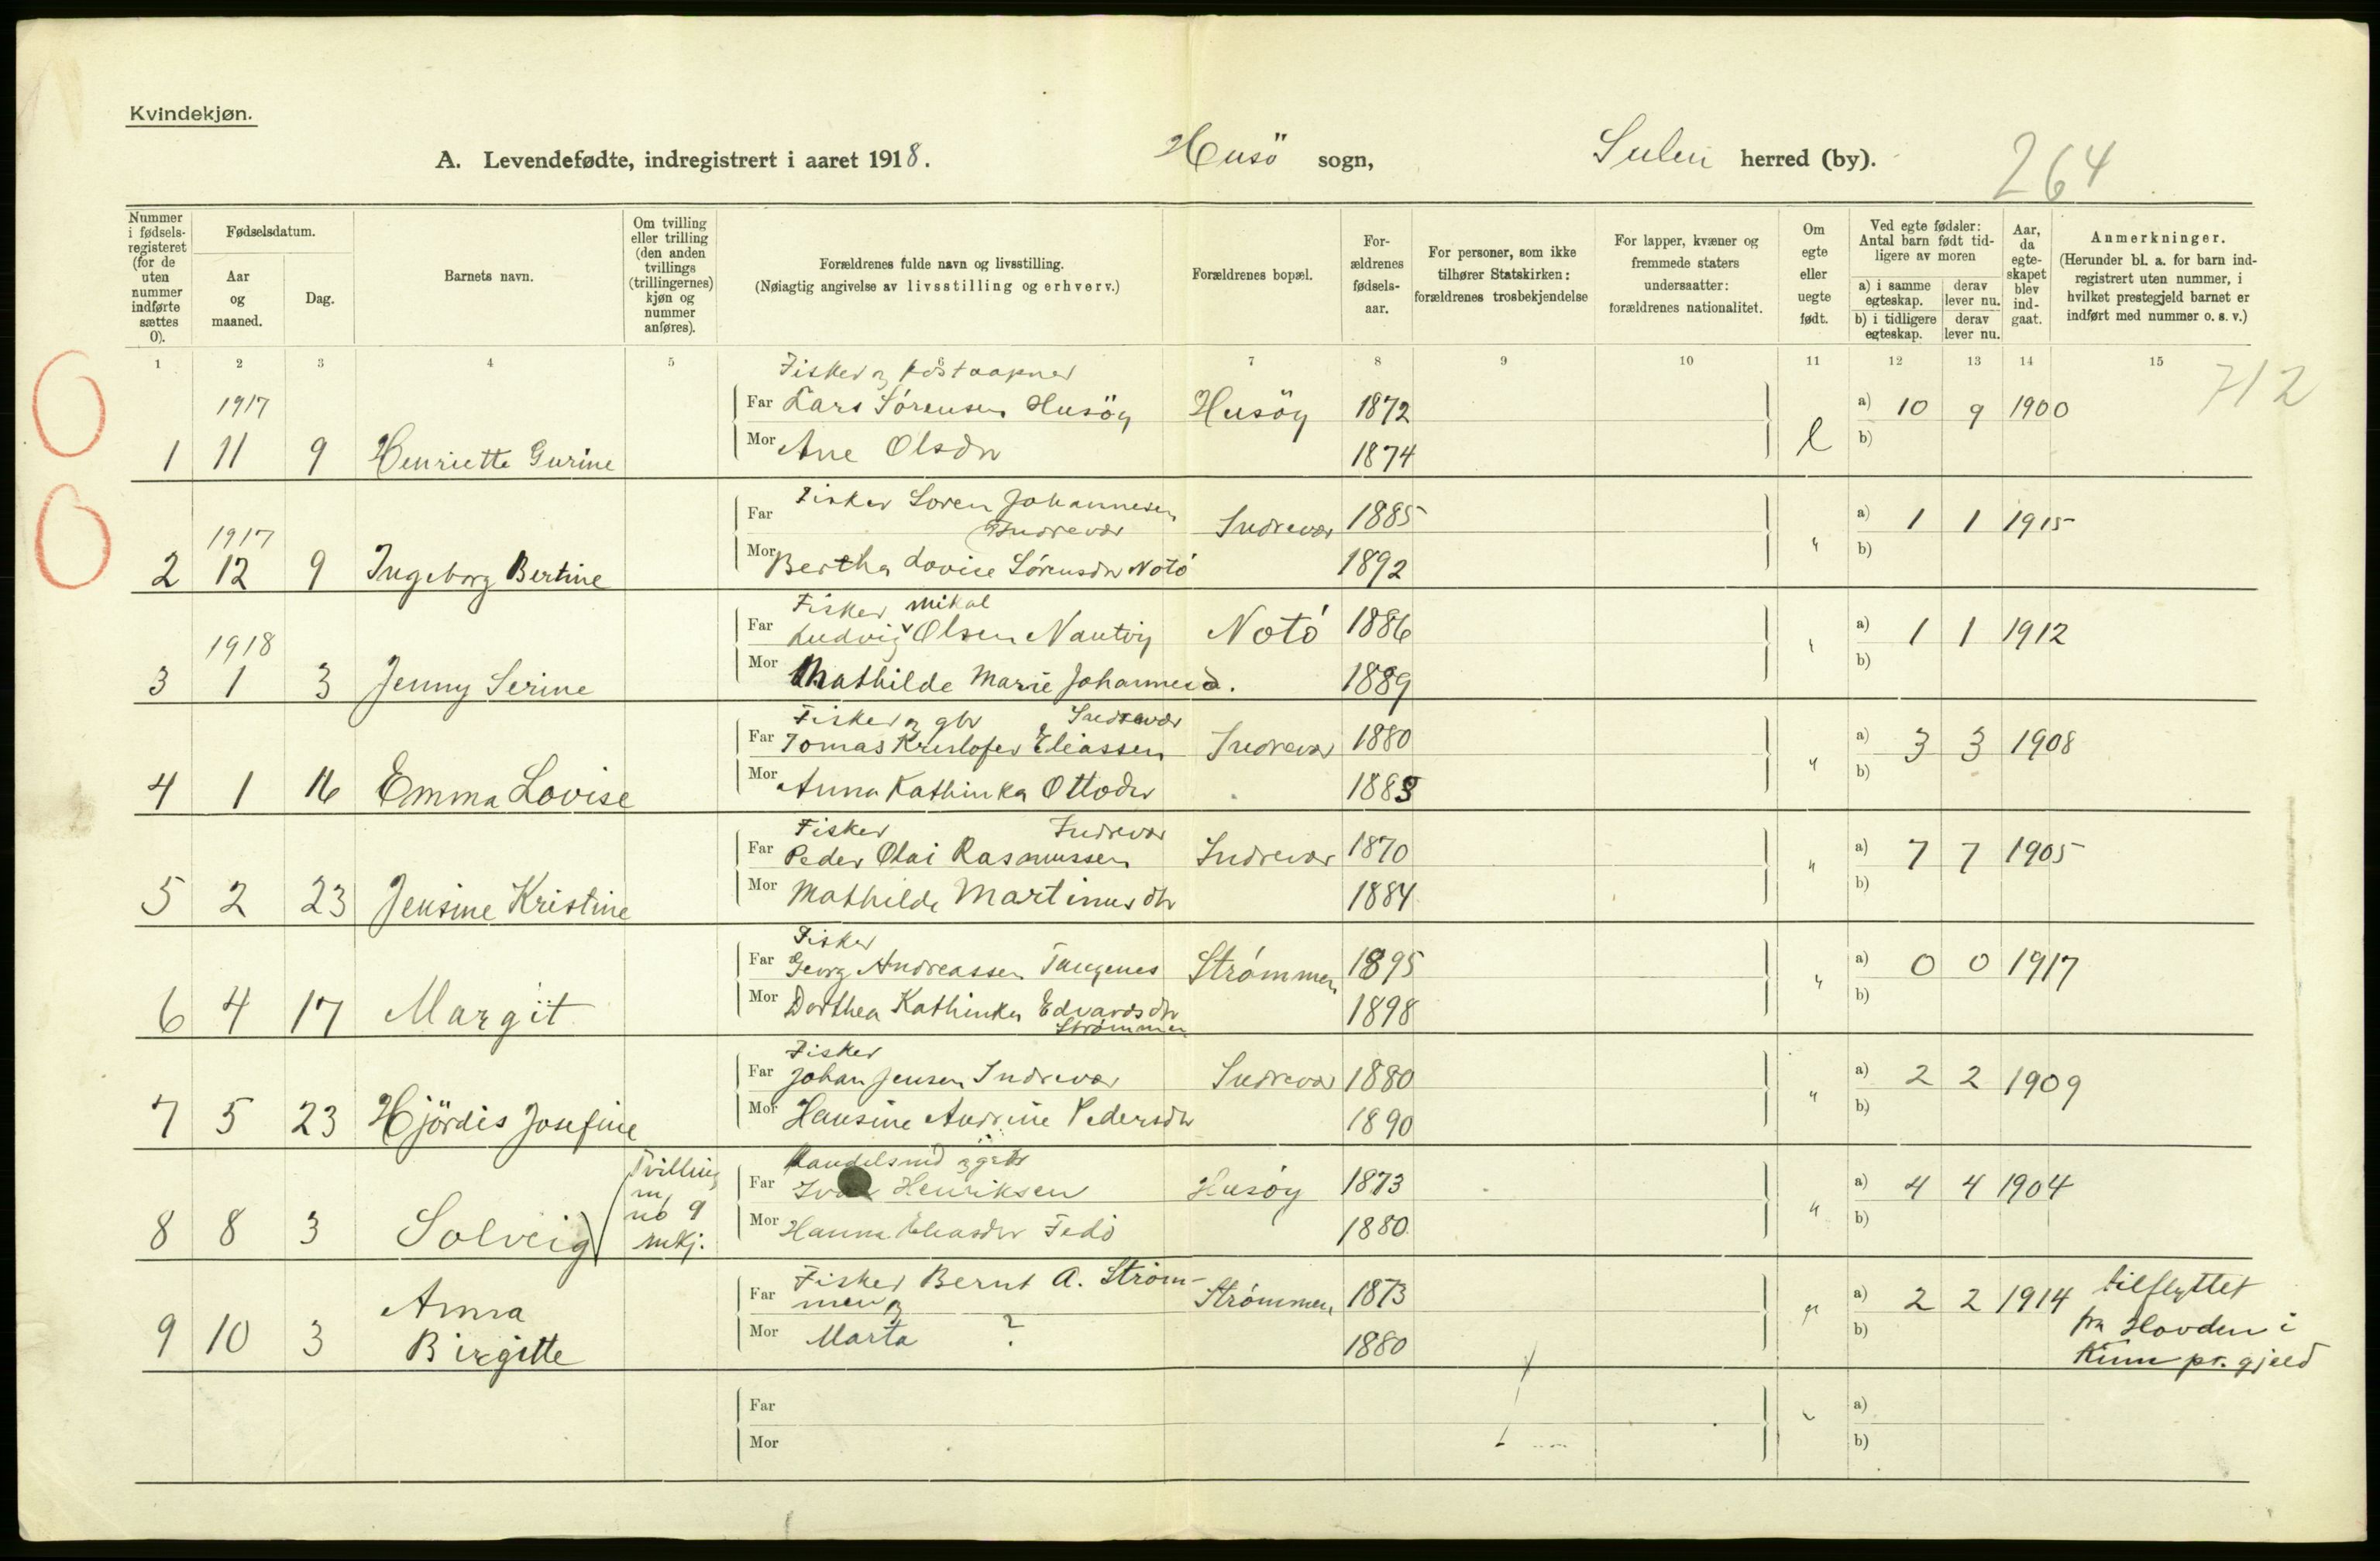 Kvindekjøn.
A. Levendefødte, indregistrert i aaret 1918. Husö sogn, Sulen herred (by). 264
Nummer i fødsels-registeret (for de uten nummer indførte sættes 0).
Fødselsdatum.
Aar og maaned.
Dag.
Barnets navn.
Om tvilling eller trilling (den anden tvillings (trillingernes) kjøn og nummer anføres).
Forældrenes fulde navn og livsstilling.
(Nøiagtig angivelse av livsstilling og erhverv.)
Forældrenes bopæl.
For-ældrenes fødsels-aar.
For personer, som ikke tilhører Statskirken: forældrenes trosbekjendelse
For lapper, kvæner og fremmede staters undersaatter: forældrenes nationalitet.
Om egte eller uegte født.
Ved egte fødsler: Antal barn født tid-ligere av moren
a) i samme egteskap.
derav lever nu.
b) i tidligere egteskap.
derav lever nu.
Aar, da egte-skapet blev ind-gaat.
Anmerkninger.
(Herunder bl. a. for barn ind-registrert uten nummer, i hvilket prestegjeld barnet er indført med nummer o. s. v.)
1 2 3 4 5 6 7 8 9 10 11 12 13 14 15
712
Fisker og postaapner
1917 Far Lars Sörensen Husöy Husöy 1872 a) 10 9 1900
1 11 9 Henriette Gurine Mor Ane Olsdr 1874 e b)
Fisker Soren Johannesen
Far Indrevær Indrevær 1885 a) 1 1 1915
1917
2 12 9 Ingeborg Bertine Mor Bertha Lovise Sórensdr Notó 1892 " b)
Fisker Mikal
Far Ludvig v Olsen Nautvig Notó 1886 a) 1 1 1912
1918
3 1 3 Jenny Serine Mor Mathilde Marie Johannesd. 1889 " b)
Fisker og gbr Indrevær
Far Tomas Kristofer Eliassen Indrevær 1880 a) 3 3 1908
4 1 16 Emma Lovise Mor Anna Kathinka Ottodr 1883 " b)
Fisker Indrevær
Far Peder Olai Rasmussen Indrevær 1870 a) 7 7 1905
5 2 23 Jensine Kristine Mor Mathilde Martinusdtr 1884 " b)
Fisker
Far Georg Andreassen Tangenes Strómmen 1895 a) 0 0 1917
6 4 17 Margit Mor Dorthea Kathinka Edvardsdtr 1898 " b)
Strømmen
Fisker
Far Johan Jensen Indrevær Indrevær 1880 a) 2 2 1909
7 5 23 Hjördis Josefine Mor Hansine Andrine Pedersdtr 1890 " b)
Tvilling m no 9 mkj.
Handelsmd og gbr
Far Ivar Henriksen Husóy 1873 a) 4 4 1904
8 8 3 Solveig Mor Hanna Eliasdr Fedö 1880 " b)
Fisker Bernt A. Ström-
Far men og Strómmen 1873 a) 2 2 1914 tilflyttet
9 10 3 Anna Birgitte Mor Marta ? 1880 " b) fra Hovden i
Kinn pr. gjeld
Far a)
Mor b)